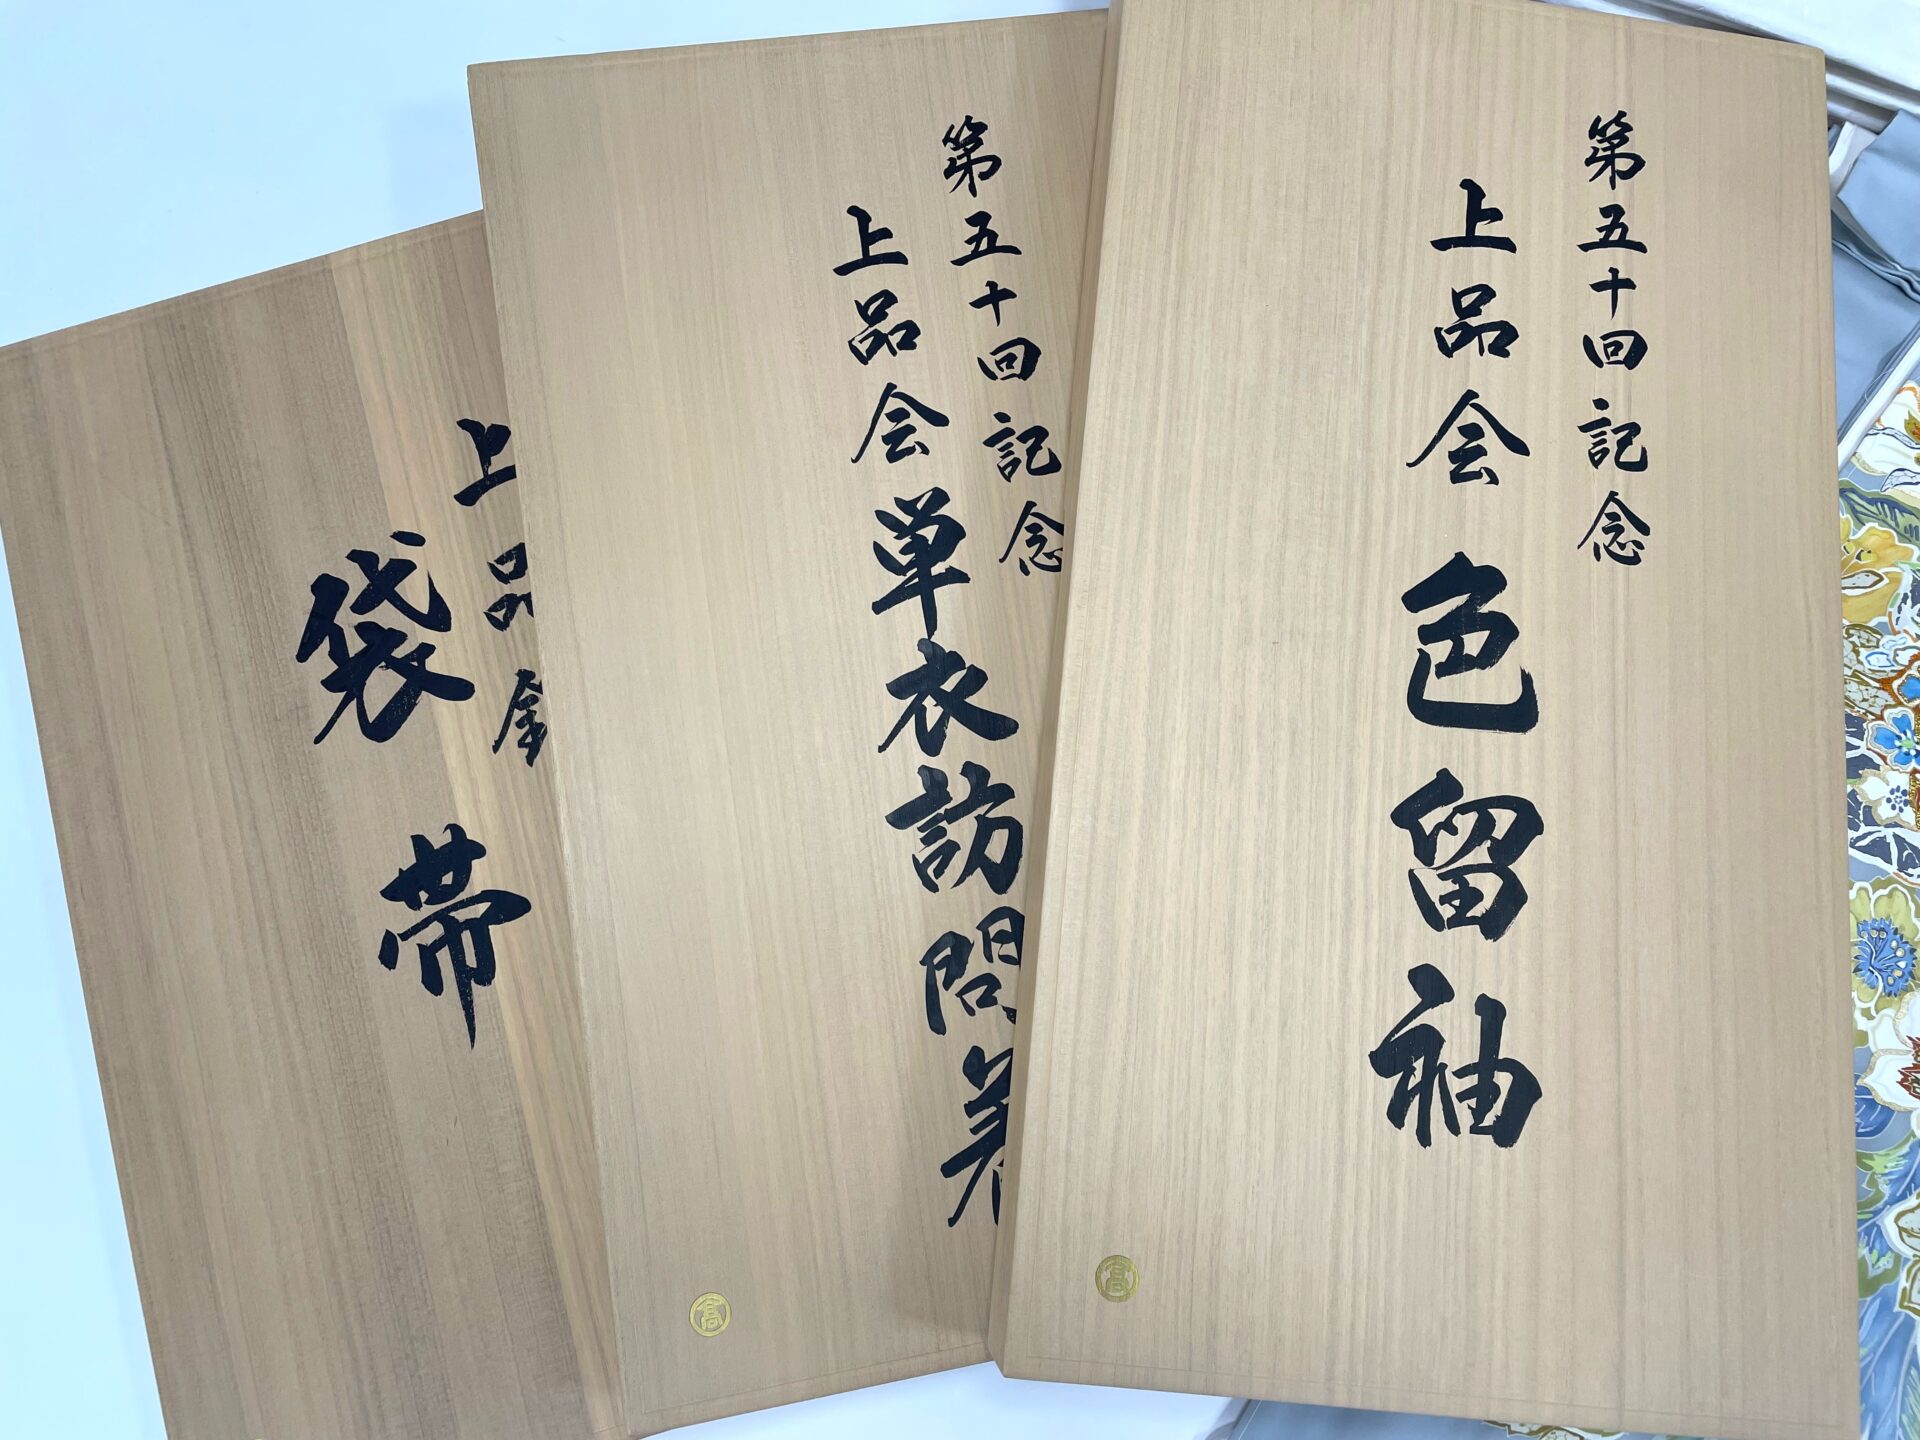 第五十回記念
上品会 色留袖
第五十回記念
上品会 単衣訪問着
上品
袋帯
髙
髙